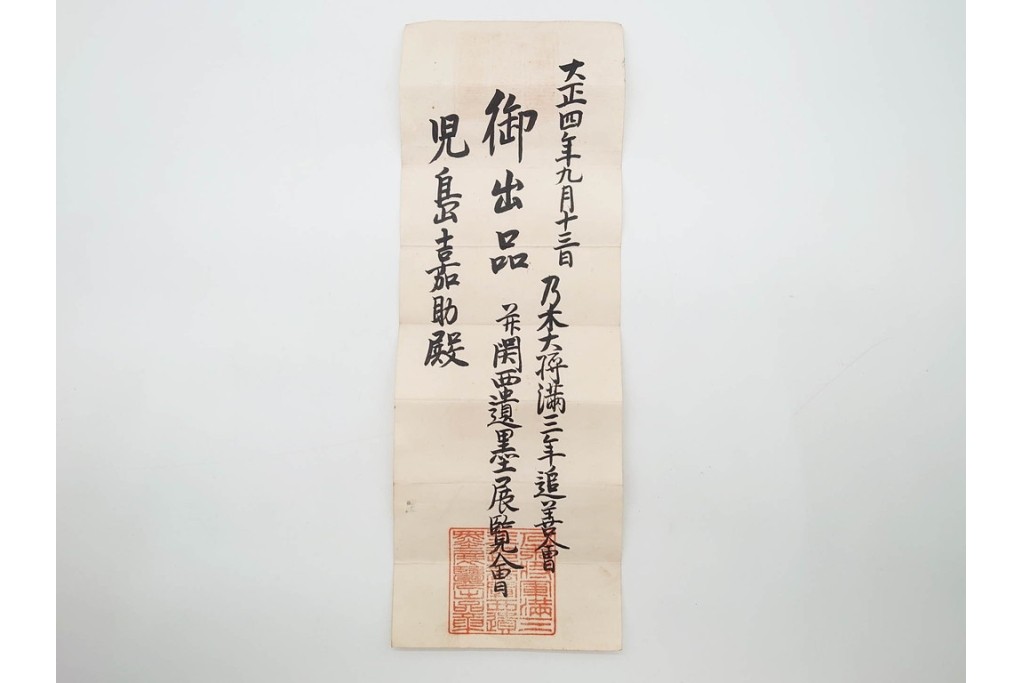 大正四年九月十三日
乃木大将満三年追善會
御出品
并関西遺墨展覧會
児島嘉助殿